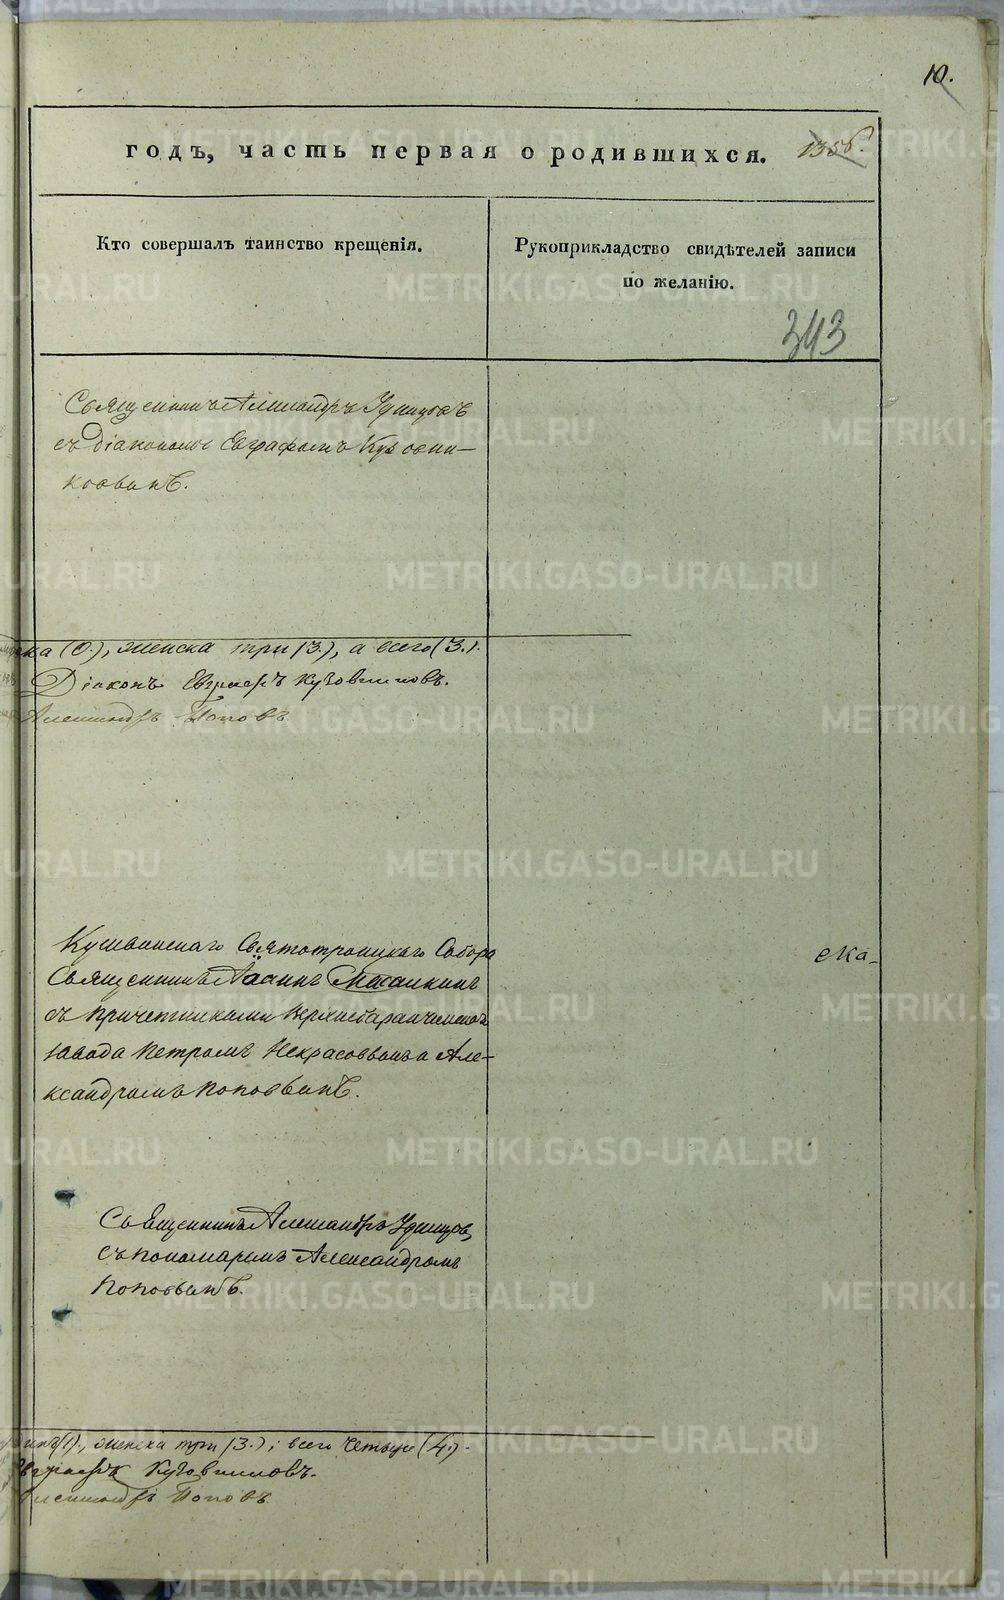 10.
годъ, часть первая о родившихся. 1356.
Кто совершалъ таинство крещенія.
Рукоприкладство свидѣтелей записи
по желанію.
343
Священникъ Александръ Удинцовъ
съ Діакономъ Евграфомъ Кузовни-
ковымъ.
ска (0.), женска три (3.), а всего (3.).
Діаконъ Евграфъ Кузовниковъ.
Александръ Поповъ
Кушвинскаго Святотроицкаго Собора
Священникъ Іоаннъ
съ Причетниками Верхнебаранчинскаго
завода Петромъ Некрасовымъ и Але-
ксандромъ Поповымъ.
ска-
Священникъ Александръ Удинцовъ
съ пономаремъ Александромъ
Поповымъ.
(1)., женска три (3.); всего четыре (4.).
Евграфъ Кузовниковъ.
Александръ Поповъ
METRIKI.GASO-URAL.RU